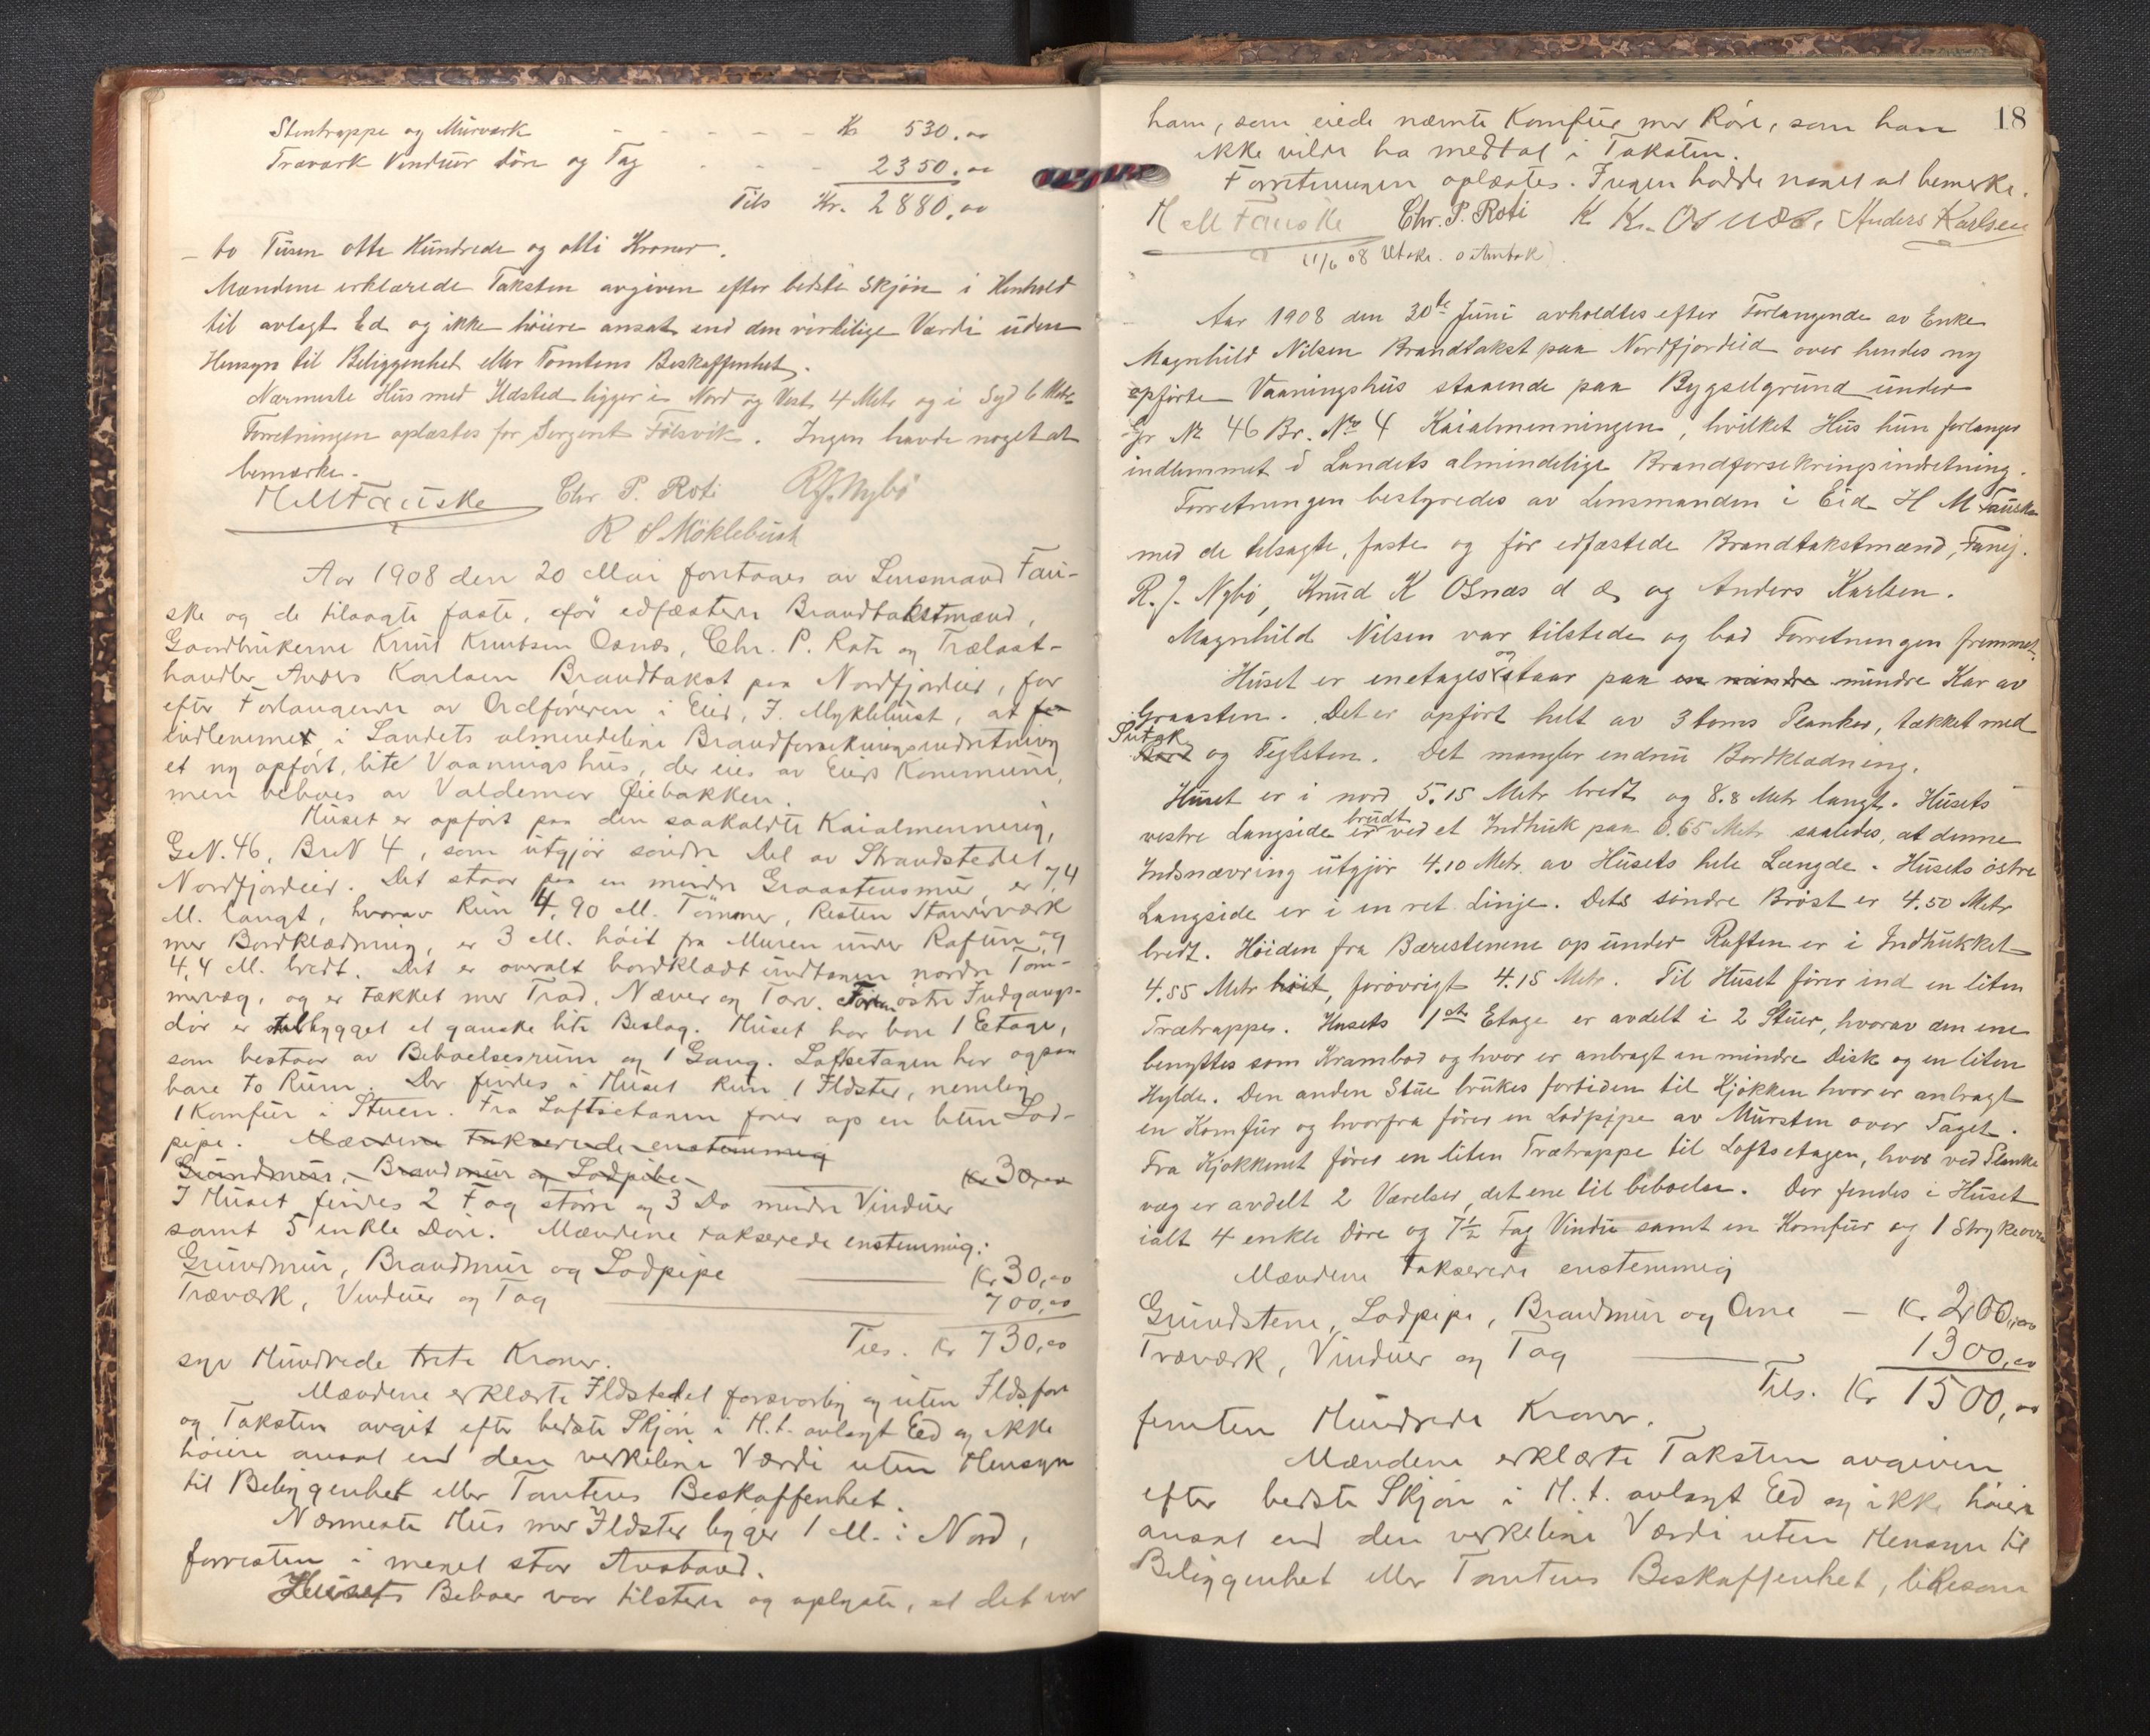 Stentrappe og Murværk - - - - - Kr 530.00
Træværk Vinduer Døre og Tag - - - 2350.00
Tils Kr. 2880.00
- to Tusen otte Hundrede og otti Kroner.
Mændene erklærede Taksten avgiven efter bedste Skjøn i Henhold
til avlagt Ed og ikke høiere ansat end den virkelige Værdi uden
Hensyn til Beliggenhet eller Tomtens Beskaffenhet.
Nærmeste Hus med Ildsted ligger i Nord og Vest 4 Metr og i Syd 6 Metr
Forretningen oplæstes for Sergent Følsvik. Ingen havde noget at
bemærke.
H M Fauske Chr P. Roti R J. Nybø
R S Møklebust
Aar 1908 den 20 Mai foretoges av Lensmand Fau-
ske og de tilsagte faste, før edfæstede Brandtakstmænd,
Gaardbrukerne Knut Knutsen Osnæs, Chr. P. Roti og Trælast-
handler Anders Karlsen Brandtakst paa Nordfjordeid, for
efter Forlangende av Ordføreren i Eid, J. Myklebust, at
indlemmet i Landets almindelige Brandforsikringsindretning
et ny opført, lite Vaaningshus, der eies av Eids Kommune,
men beboes av Valdemar Øiebakken.
Huset er opført paa den saakaldte Kaialmenning,
G.N. 46, Br.N 4, som utgjør søndre Del av Strandstedet
Nordfjordeid. Det staar paa en mindre Graastensmur, er 7,4
M. langt, hvorav kun 4,90 M. Tømmer, Resten Stavværk
med Bordklædning, er 3 M. høit fra Muren under Raften og
4,4 M. bredt. Det er overalt bordklædt undtagen nordre Tøm-
mervæg, og er tækket med Trod, Næver og Torv. Foran østre Indgangs-
dør er tilbygget et ganske lite Beslag. Huset har bare 1 Etage,
som bestaar av Beboelsesrum og 1 Gang. Loftsetagen har ogsaa
bare to Rum. Der findes i Huset kun 1 Ildsted, nemlig
1 Komfur i Stuen. Fra Loftsetagen fører op en liten Lod-
pipe. Mændene takserede enstemmig
Grundmur, Brandmur og Lodpibe - Kr 30,00
I Huset findes 2 Fag større og 3 Do mindre Vinduer
samt 5 enkle Døre. Mændene takserede enstemmig:
Grundmur, Brandmur og Lodpipe Kr 30,00
Træværk, Vinduer og Tag 700,00
Tils. Kr 730,00
syv Hundrede treti Kroner.
Mændene erklærte Ildstedet forsvarlig og uten Ildsfare
og Taksten avgit efter bedste Skjøn i H.t. avlagt Eed og ikke
høiere ansat end den verkelige Værdi uten Hensyn
til Beliggenhet eller Tomtens Beskaffenhet.
Nærmeste Hus med Ildsted ligger 1 M. i Nord,
forresten i meget stor Avstand.
Husets Beboer var tilstede og oplyste, at det var
18
ham, som eiede nævnte Komfur med Rør, som han
ikke vilde ha medtat i Taksten.
Forretningen oplæstes. Ingen hadde noget at bemerke.
H M Fauske Chr. P. Roti K K. Osnæs. Anders Karlsen
11/6 08 Utskr. o
Aar 1908 den 30te Juni avholdtes efter Forlangende av Enke
Magnhild Nilsen Brandtakst paa Nordfjordeid over hendes ny
opførte Vaaningshus staaende paa Bygselgrund under
Gr Nr 46 Br. No 4 Kaialmenningen, hvilket Hus hun forlanger
indlemmet i Landets almindelige Brandforsekringsindretning.
Forretningen bestyredes av Lensmanden i Eid H M Fauske
med de tilsagte, faste og før edfæstede Brandtakstmænd, Fanej.
R. J. Nybø, Knud K Osnæs d æ og Anders Karlsen.
Magnhild Nilsen var tilstede og bad Forretningen fremmet.
Huset er enetages og staar paa en mindre mindre Kar av
Graasten. Det er opført helt av 3 toms Planker, tækket med
Sutak Bord og Teglsten. Det mangler endnu Bordklædning.
Huset er i nord 5.15 Metr bredt og 8.8 Metr langt. Husets
vestre Langside er brudt ved et Indhuk paa 0.65 Metr saaledes, at denne
Indsnævring utgjør 4.10 Metr. av Husets hele Længde. Husets østre
Langside er i en ret Linje. Dets søndre Brøst er 4.50 Metr
bredt. Høiden fra Bærestenene op under Raften er i Indhukket
4.55 Metr høit, forøvrigt 4.15 Metr. Til Huset fører ind en liten
Trætrappe. Husets 1ste Etage er avdelt i 2 Stuer, hvorav den ene
benyttes som Krambod og hvor er anbragt en mindre Disk og en liten
Hylde. Den anden Stue brukes fortiden til Kjøkken hvor er anbragt
en Komfur og hvorfra fører en Lodpipe av Mursten over Taget.
Fra Kjøkkenet fører en liten Trætrappe til Loftsetagen, hvor ved Planke
væg er avdelt 2 Værelser, det ene til beboelse. Der findes i Huset
ialt 4 enkle Døre og 7½ Fag Vindu samt en Komfur og 1 Strykeovn
Mændene takserede enstemmig
Grundstene, Lodpipe, Brandmur og Ovne - Kr. 200,00
Træværk, Vinduer og Tag 1300,00
Tils. Kr 1500,00
femten Hundrede Kroner.
Mændene erklærte Taksten avgiven
efter bedste Skjøn i H.t. avlagt Eed og ikke høiere
ansat end den verkelige Værdi uten Hensyn til
Beliggenhet eller Tomtens Beskaffenhet, likesom